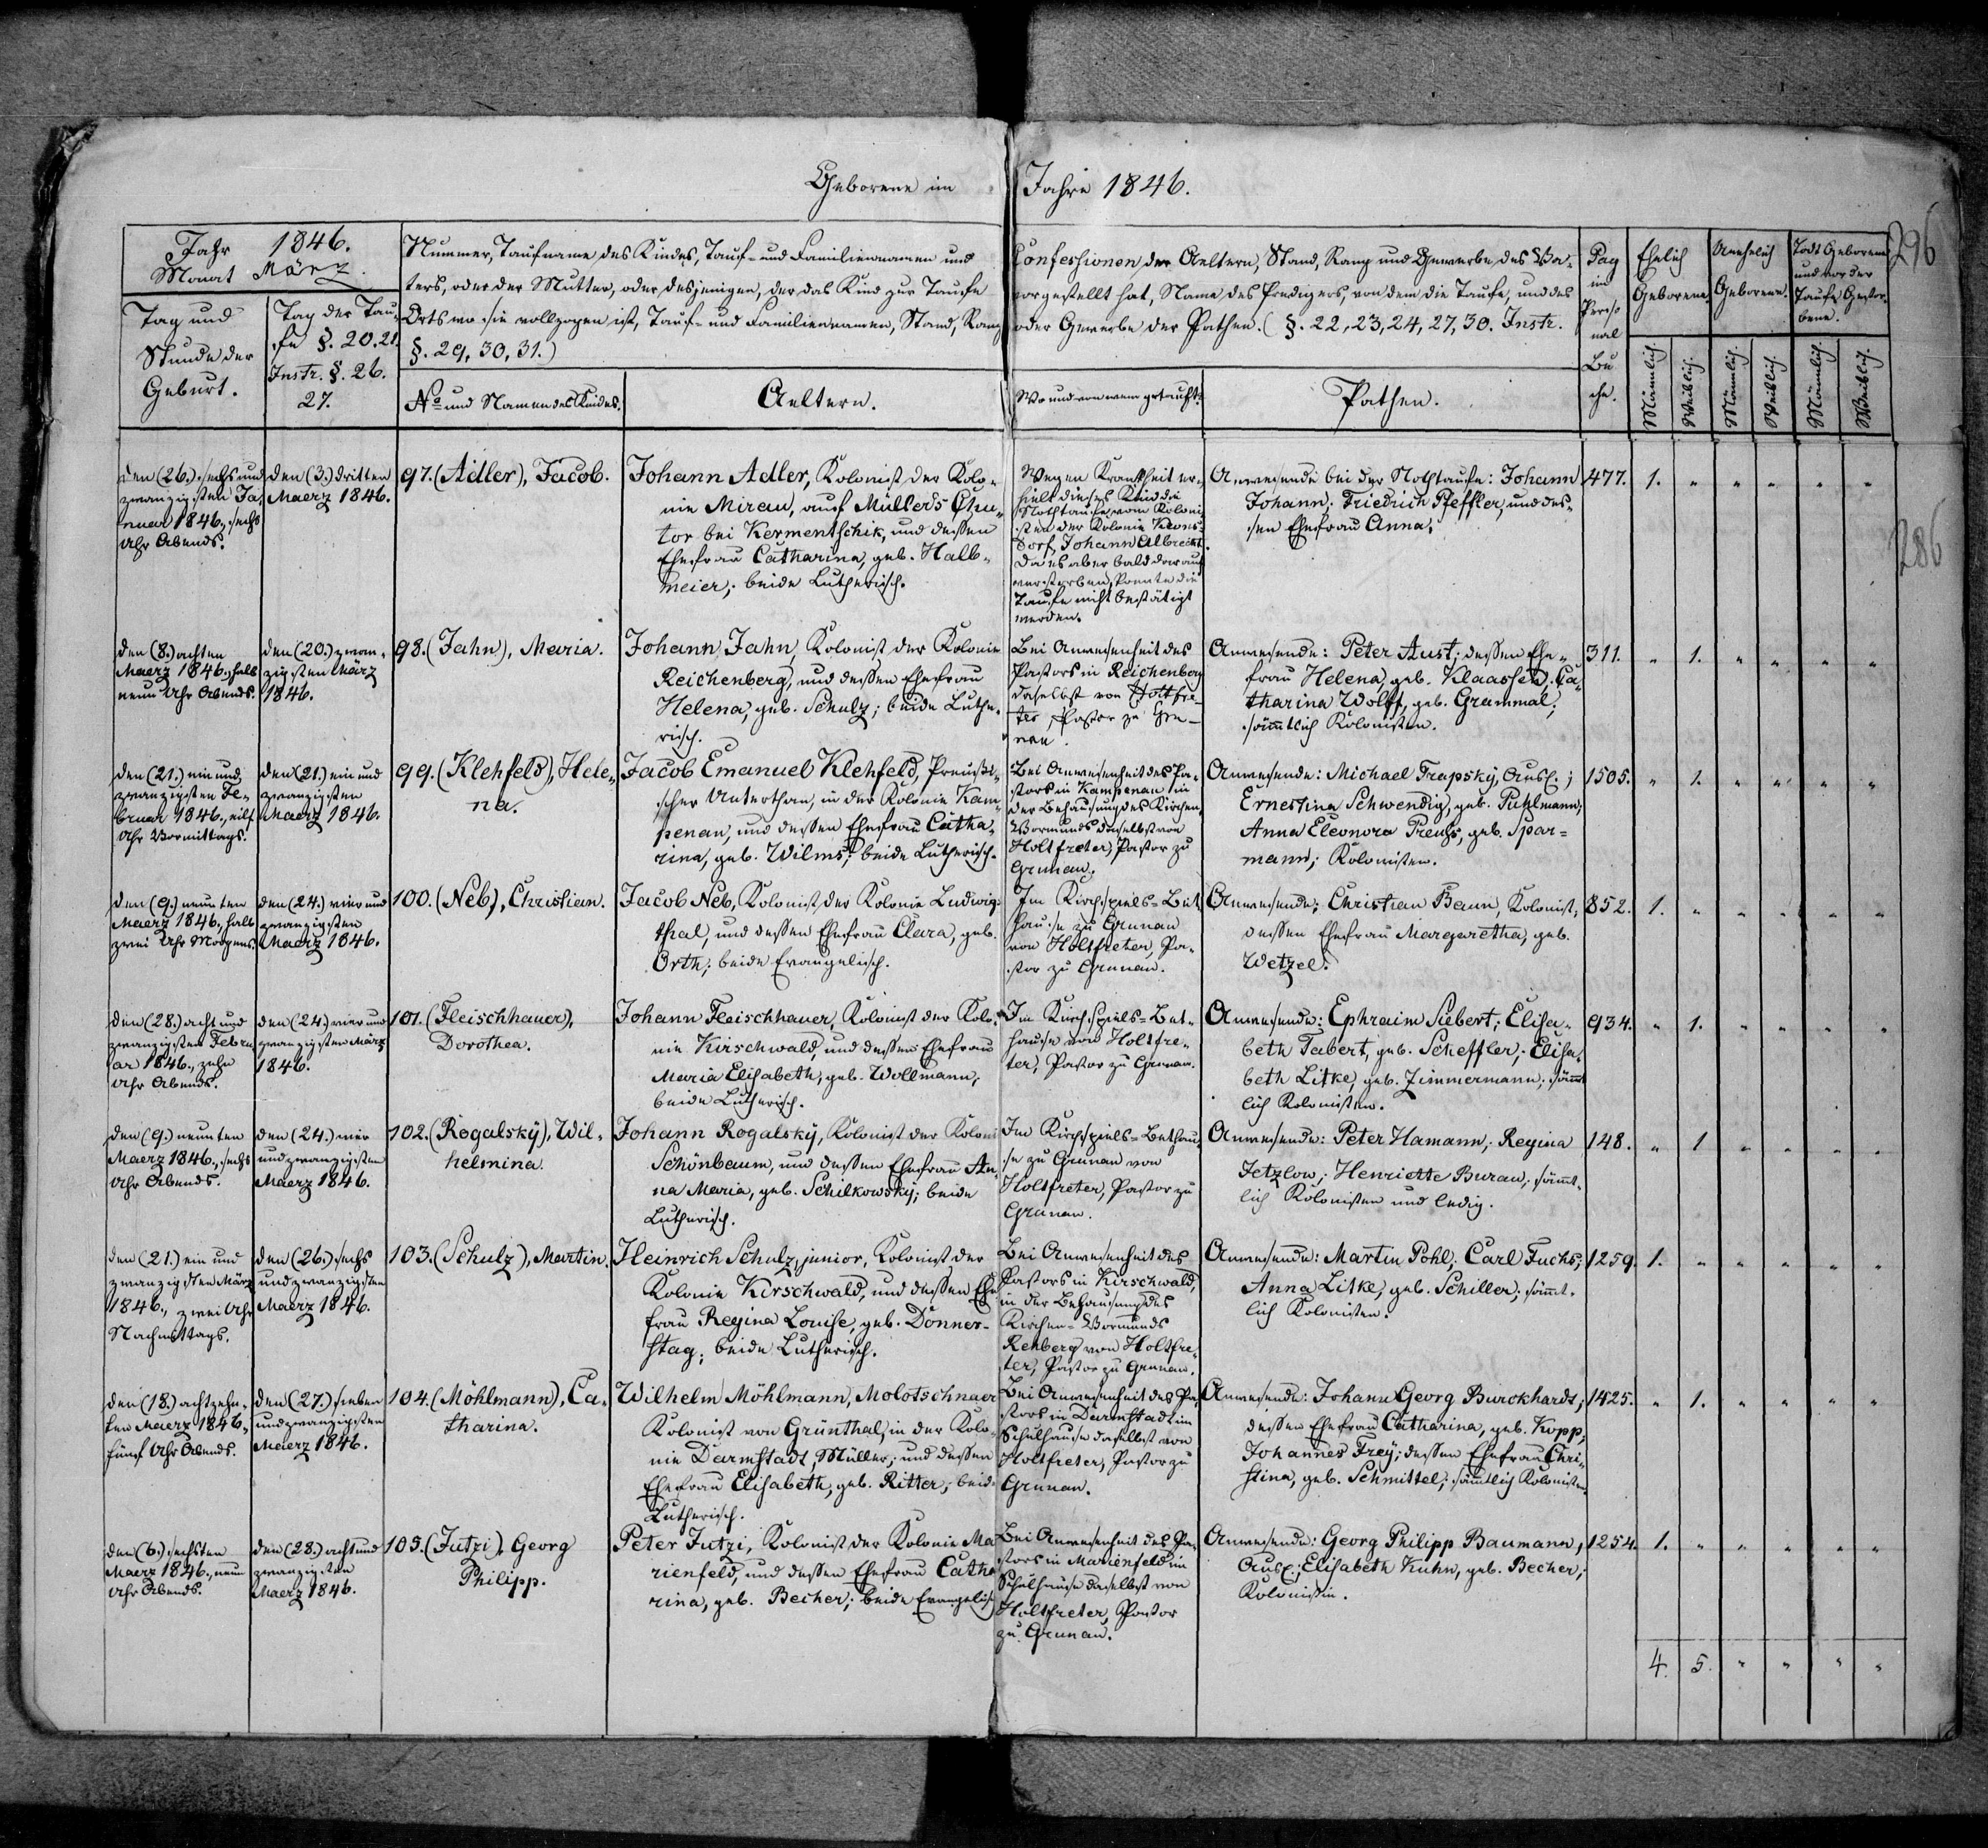 Geborene im Jahre 1846.
296
286
Jahr 1846.
Monat März.
Tag und
Stunde der
Geburt.
Tag der Tau-
fe §. 20. 21.
Instr. §. 26.
27.
Nummer, Taufname des Kindes, Tauf- und Familiennamen und Confessionen der Aeltern, Stand, Rang und Gewerbe des Va-
ters, oder der Mutter, oder desjenigen, der das Kind zur Taufe vorgestellt hat, Name des Predigers, von dem die Taufe, und des
Orts wo sie vollzogen ist, Tauf- und Familiennamen, Stand, Rang oder Gewerbe der Pathen. (§. 22, 23, 24, 27, 30. Instr.
§. 29, 30, 31.)
No und Namen des Kindes.
Aeltern.
Wo und von wem getauft.
Pathen.
Pag
im
Perso
nal
Bu
che.
Ehelich
Geborene.
Unehelich
Geborene.
Todt Geborene
und vor der
Taufe Gestor-
bene.
Männlich.
Weiblich.
Männlich.
Weiblich.
Männlich.
Weiblich.
den (26.) sechs und
zwanzigsten Ja-
nuar 1846., sechs
Uhr Abends.
den (3.) dritten
Maerz 1846.
97. (Adler), Jacob.
Johann Adler, Kolonist der Kolo-
nie Mirau, auf Müllers Chu-
tor bei Kermentschik, und dessen
Ehefrau Catharina, geb. Halb-
meier; beide Lutherisch.
Wegen Krankheit er-
hielt dieses Kind die
Nothtaufe vom Koloni-
sten der Kolonie Krons-
dorf, Johann Albrecht.
Da es aber bald darauf
verstorben, konnte die
Taufe nicht bestätigt
werden.
Anwesende bei der Nothtaufe: Johann
Johann; Friedrich Pfeffler, und des-
sen Ehefrau Anna;
477. 1. " " " " "
den (8.) achten
Maerz 1846., halb
neun Uhr Abends.
den (20.) zwan-
zigsten März
1846.
98. (Jahn), Maria.
Johann Jahn, Kolonist der Kolonie
Reichenberg, und dessen Ehefrau
Helena, geb. Schulz; beide Luthe-
risch.
Bei Anwesenheit des
Pastors in Reichenberg
daselbst von Holtfre-
ter, Pastor zu Gru-
nau.
Anwesende: Peter Aust; dessen Ehe-
frau Helena, geb. Klaassen; Ca-
tharina Wolff, geb. Grammal;
sämtlich Kolonisten.
311. " 1. " " " "
den (21.) ein und
zwanzigsten Fe-
bruar 1846., eilf
Uhr Vormittags.
den (21.) ein und
zwanzigsten
Maerz 1846.
99. (Klehfeld), Hele-
na.
Jacob Emanuel Klehfeld, Preußi-
scher Unterthan, in der Kolonie Kam-
penau, und dessen Ehefrau Catha-
rina, geb. Wilms; beide Lutherisch.
Bei Anwesenheit des Pa-
stors in Kampenau in
der Behausung des Kirchen-
Vormunds daselbst von
Holtfreter, Pastor zu
Grunau.
Anwesende: Michael Trapsky, Ausl.;
Ernestina Schwendig, geb. Puhlmann;
Anna Eleonora Preuß, geb. Spar-
mann; Kolonisten.
1505. " 1. " " " "
den (9.) neunten
Maerz 1846., halb
zwei Uhr Morgens.
den (24.) vier und
zwanzigsten
Maerz 1846.
100. (Neb), Christian.
Jacob Neb, Kolonist der Kolonie Ludwigs-
thal, und dessen Ehefrau Clara, geb.
Orth; beide Evangelisch.
Im Kirchspiels-Bet-
hause zu Grunau
von Holtfreter, Pa-
stor zu Grunau.
Anwesende; Christian Baun, Kolonist,
dessen Ehefrau Margaretha, geb.
Wetzel.
852. 1. " " " " "
den (28.) acht und
zwanzigsten Febru
ar 1846., zehn
Uhr Abends.
den (24.) vier und
zwanzigsten März
1846.
101. (Fleischhauer),
Dorothea.
Johann Fleischhauer, Kolonist der Kolo-
nie Kirschwald, und dessen Ehefrau
Maria Elisabeth, geb. Wollmann;
beide Lutherisch.
Im Kirchspiels-Bet-
hause von Holtfre-
ter, Pastor zu Grunau.
Anwesende: Ephraim Siebert; Elisa-
beth Tabert, geb. Scheffler; Elisa-
beth Litke, geb. Zimmermann; sämt
lich Kolonisten.
934. " 1. " " " "
den (9.) neunten
Maerz 1846., sechs
Uhr Abends.
den (24.) vier
und zwanzigsten
Maerz 1846.
102. (Rogalsky), Wil-
helmina.
Johann Rogalsky, Kolonist der Koloni
Schönbaum, und dessen Ehefrau An-
na Maria, geb. Schilkowsky; beide
Lutherisch.
Im Kirchspiels-Bethau-
se zu Grunau von
Holtfreter, Pastor zu
Grunau.
Anwesende: Peter Hamann; Regina
Jetzlow; Henriette Burau; sämt-
lich Kolonisten und ledig.
148. " 1 " " " "
den (21.) ein und
zwanzigsten März
1846., zwei Uhr
Nachmittags.
den (26.) sechs
und zwanzigsten
Maerz 1846.
103. (Schulz), Martin.
Heinrich Schulz, junior, Kolonist der
Kolonie Kirschwald, und dessen Ehe
frau Regina Louise, geb. Donner-
stag; beide Lutherisch.
Bei Anwesenheit des
Pastors in Kirschwald,
in der Behausung des
Kirchen-Vormunds
Rehberg von Holtfre-
ter, Pastor zu Grunau.
Anwesende: Martin Pohl; Carl Fuchs;
Anna Litke, geb. Schiller; sämt-
lich Kolonisten.
1259. 1. " " " " "
den (18.) achtzehn-
ten Maerz 1846.,
fünf Uhr Abends.
den (27.) sieben
und zwanzigsten
Maerz 1846.
104. (Möhlmann), Ca-
tharina.
Wilhelm Möhlmann, Molotschnaer
Kolonist von Grünthal, in der Kolo-
nie Darmstadt, Müller; und dessen
Ehefrau Elisabeth, geb. Ritter; beide
Lutherisch.
Bei Anwesenheit des Pa-
stors in Darmstadt im
Schulhause daselbst von
Holtfreter, Pastor zu
Grunau.
Anwesende: Johann Georg Burckhardt;
dessen Ehefrau Catharina, geb. Kopp;
Johannes Frey; dessen Ehefrau Chri-
stina, geb. Schmittel; sämtlich Kolonisten.
1425. " 1. " " " "
den (6.) sechsten
Maerz 1846., neun
Uhr Abends.
den (28.) acht und
zwanzigsten
Maerz 1846.
105. (Jutzi), Georg
Philipp.
Peter Jutzi, Kolonist der Kolonie Ma
rienfeld, und dessen Ehefrau Catha
rina, geb. Becher; beide Evangelisch
Bei Anwesenheit des Pa-
stors in Marienfeld im
Schulhause daselbst von
Holtfreter, Pastor
zu Grunau.
Anwesende: Georg Philipp Baumann,
Ausl.; Elisabeth Kuhn, geb. Becher;
Kolonistin.
1254. 1. " " " " "
4. 5. " " " "